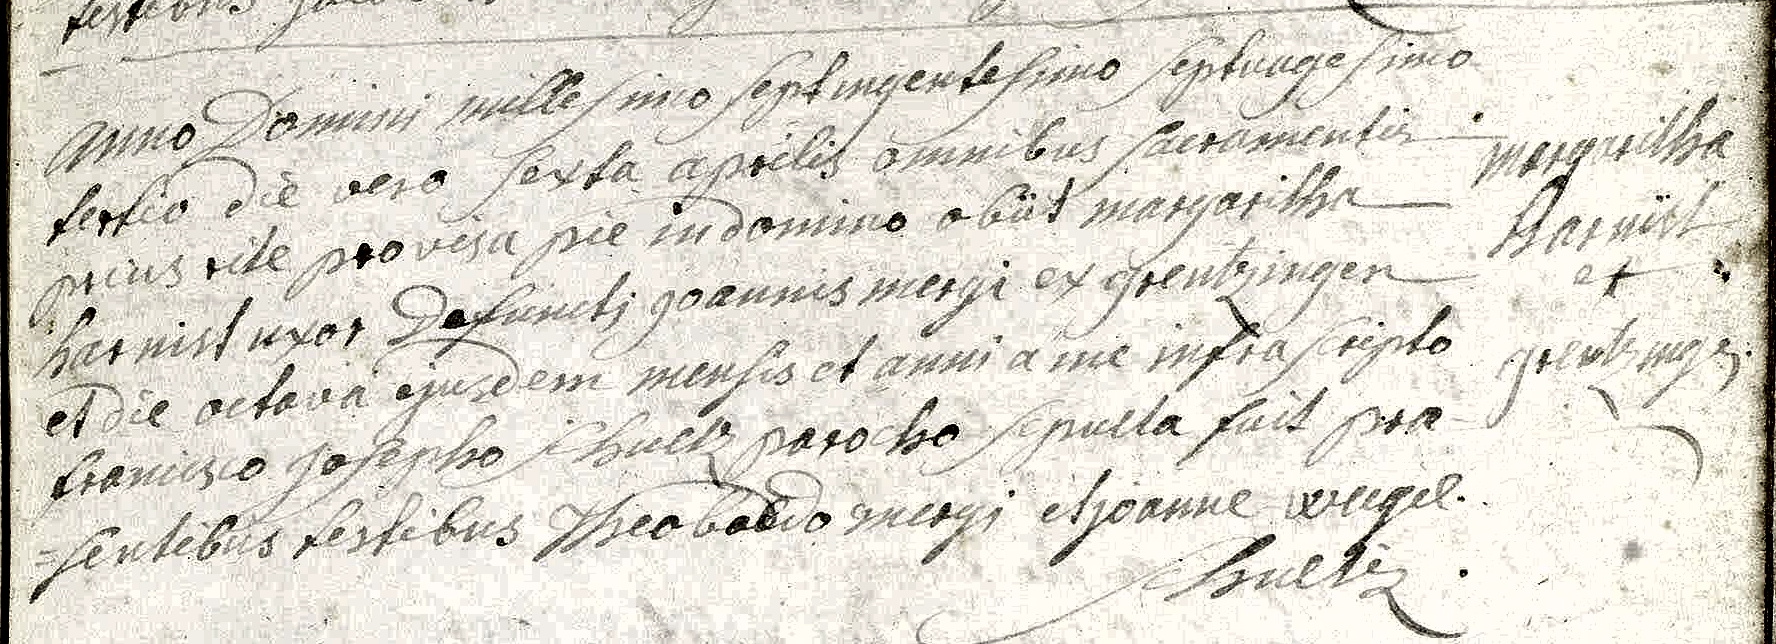 testibus
Anno Domini millesimo septingentesimo septuagesimo
tertio die vero sexta aprilis omnibus sacramentis
prius rite provisa pie in domino obiit margaritha
harnist uxor Defuncti joannis mergi ex grentzingen
et die octava ejusdem mensis et anni a me infra scripto
francisco josepho schultz parocho sepulta fuit præ-
=sentibus testibus Theobaldo mergi et joanne weigel.
Schultz.
margaritha
harnist
et
grentzingen